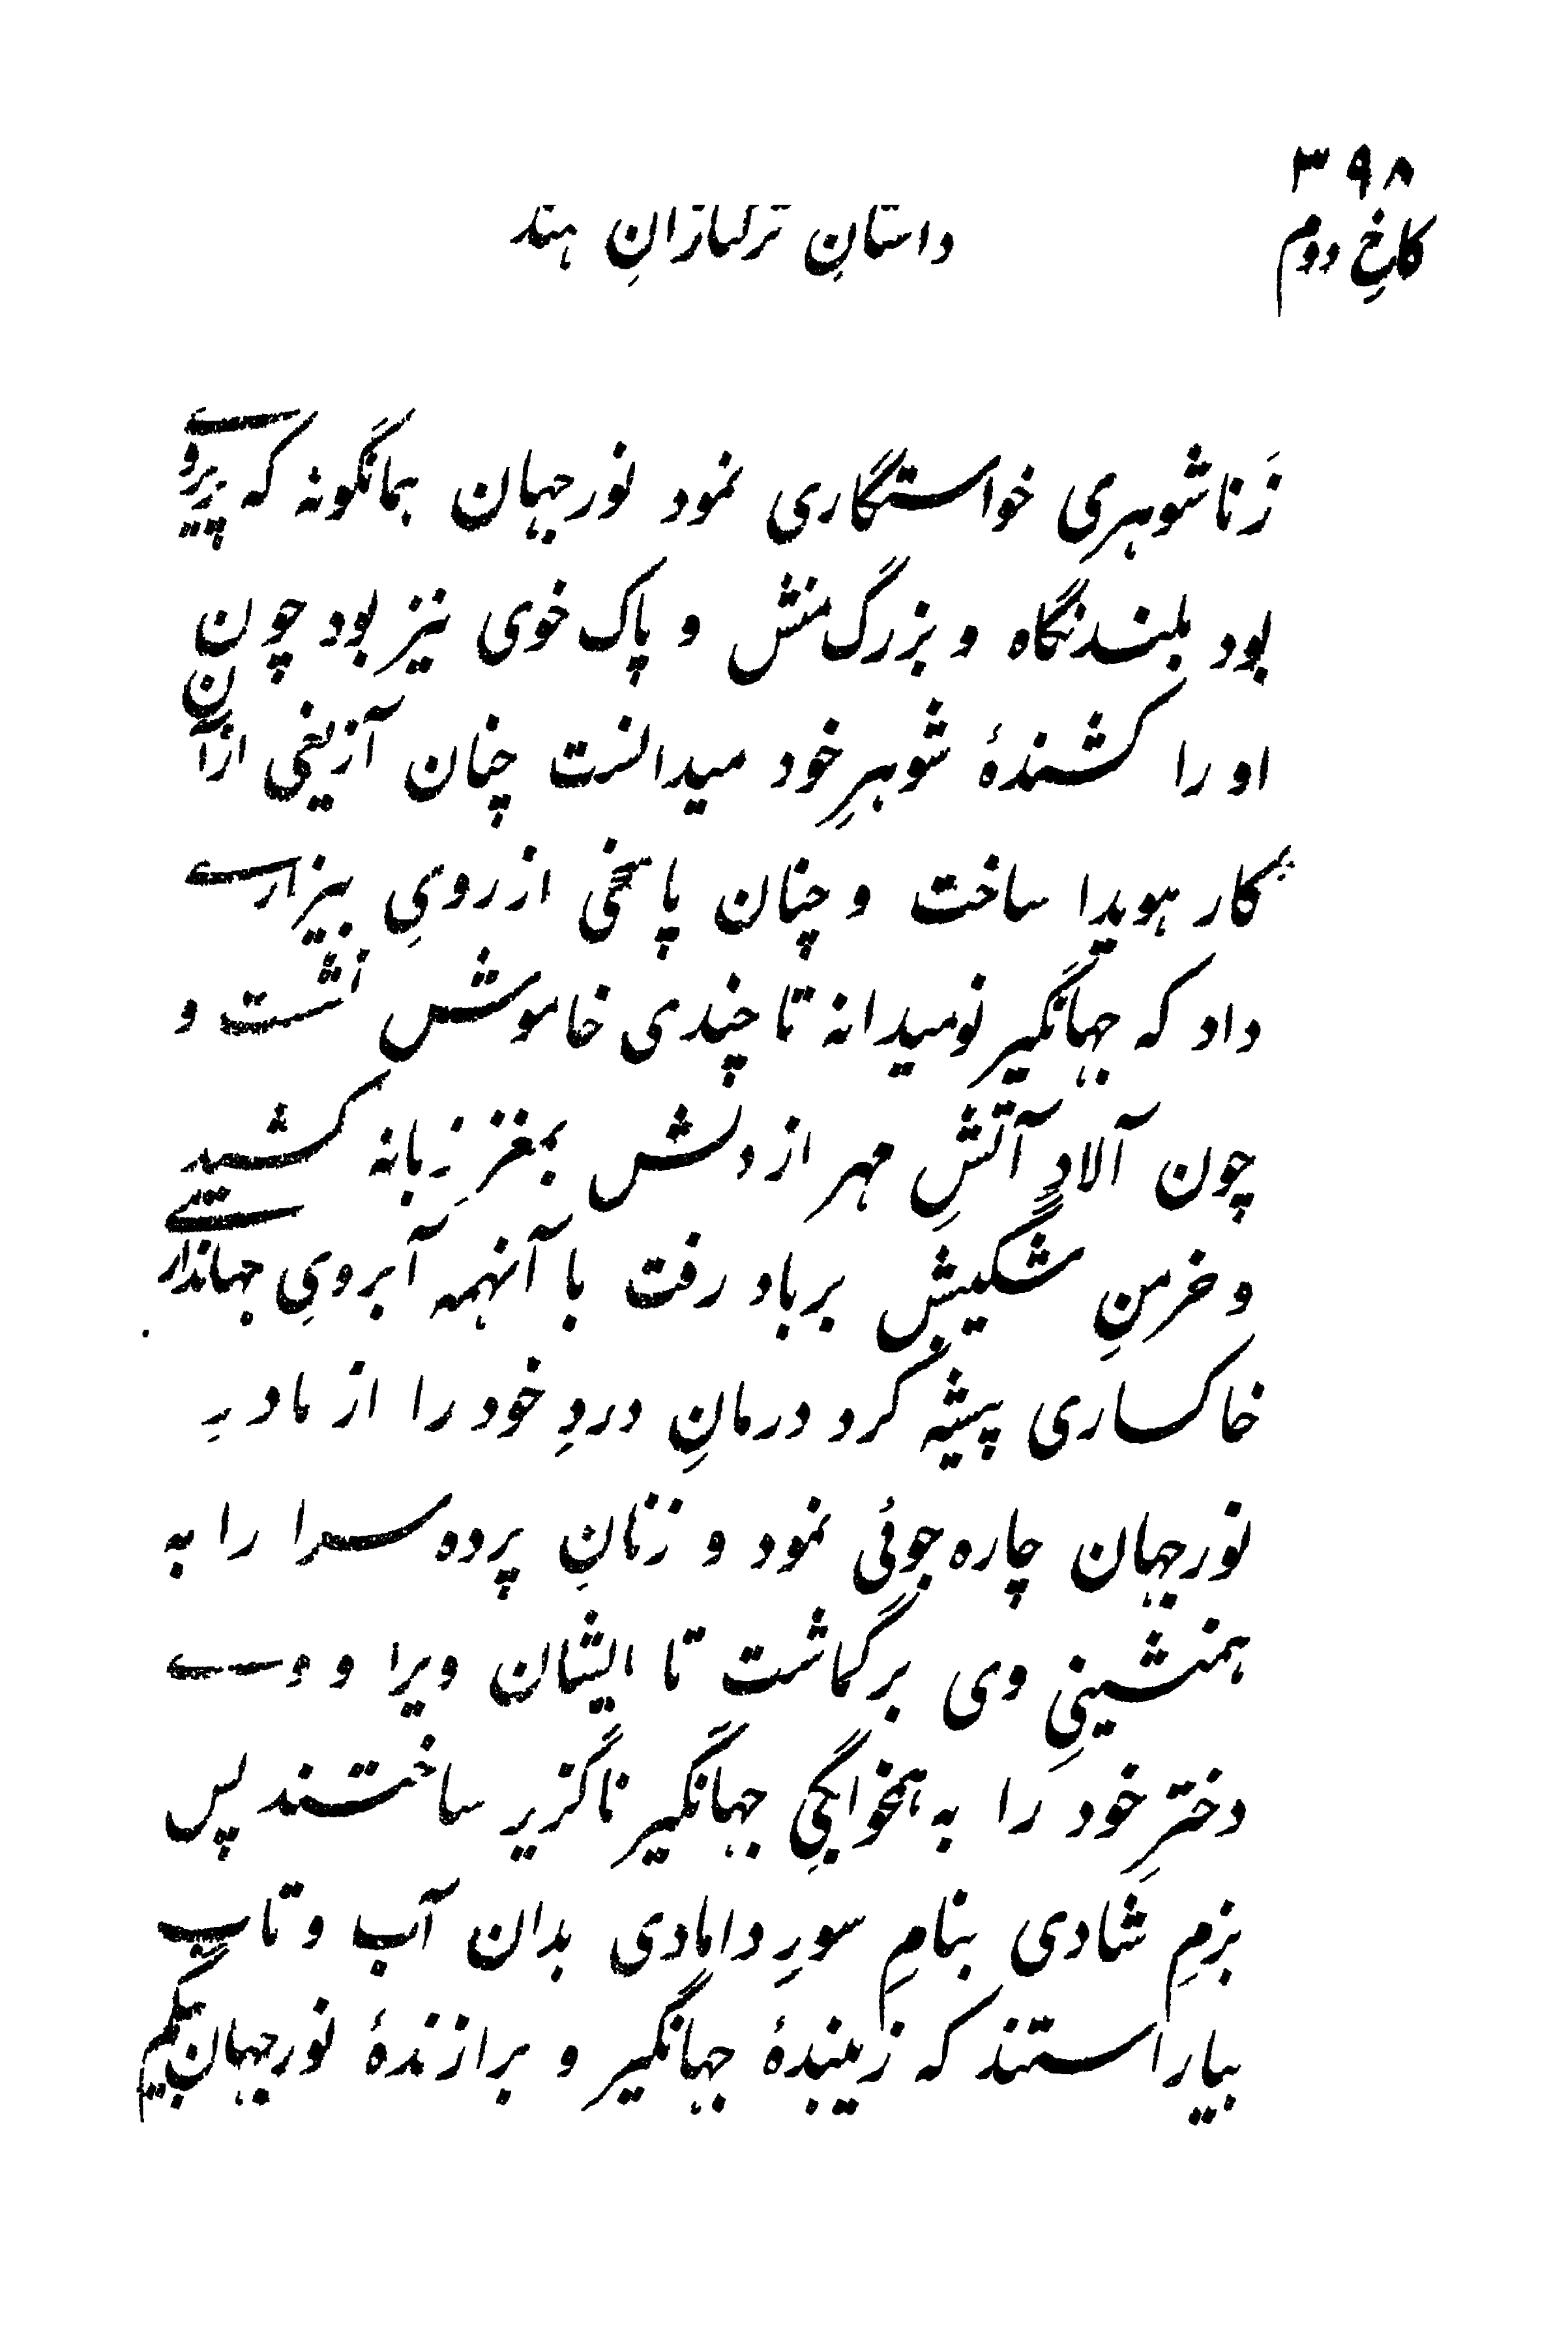 ۳۹۸
داستانِ ترکتازانِ هند
کاخِ دوم
زَناشوهری خواستگاری نمود نورجهان همانگونه که پریروے
بود بلندنگاه و بزرگ منش و پاک خوی نیز بود چون
او را کشندهٔ شوهرِ خود میدانست چنان آزیغی ازآن
کار هویدا ساخت و چنان پاسخی از رویِ بیزارے
داد که جهانگیر نومیدانه تا چندی خاموش نشست و
چون آلادِ آتشِ مهر از دلش بمغز زبانه کشید
و خرمنِ شکیبش برباد رفت با آنهمه آبرویِ جهاندارے
خاکساری پیشه کرد درمانِ دردِ خود را از مادرِ
نورجهان چاره جوئی نمود و زنانِ پرده سرا را به
همنشینیِ وی برگماشت تا ایشان ویرا و وے
دخترِ خود را به همخوابگیِ جهانگیر ناگزیر ساختند پس
بزمِ شادی بنامِ سورِ دامادی بدان آب و تاب
بیاراستند که زیبندهٔ جهانگیر و برازندهٔ نورجهان بیگم